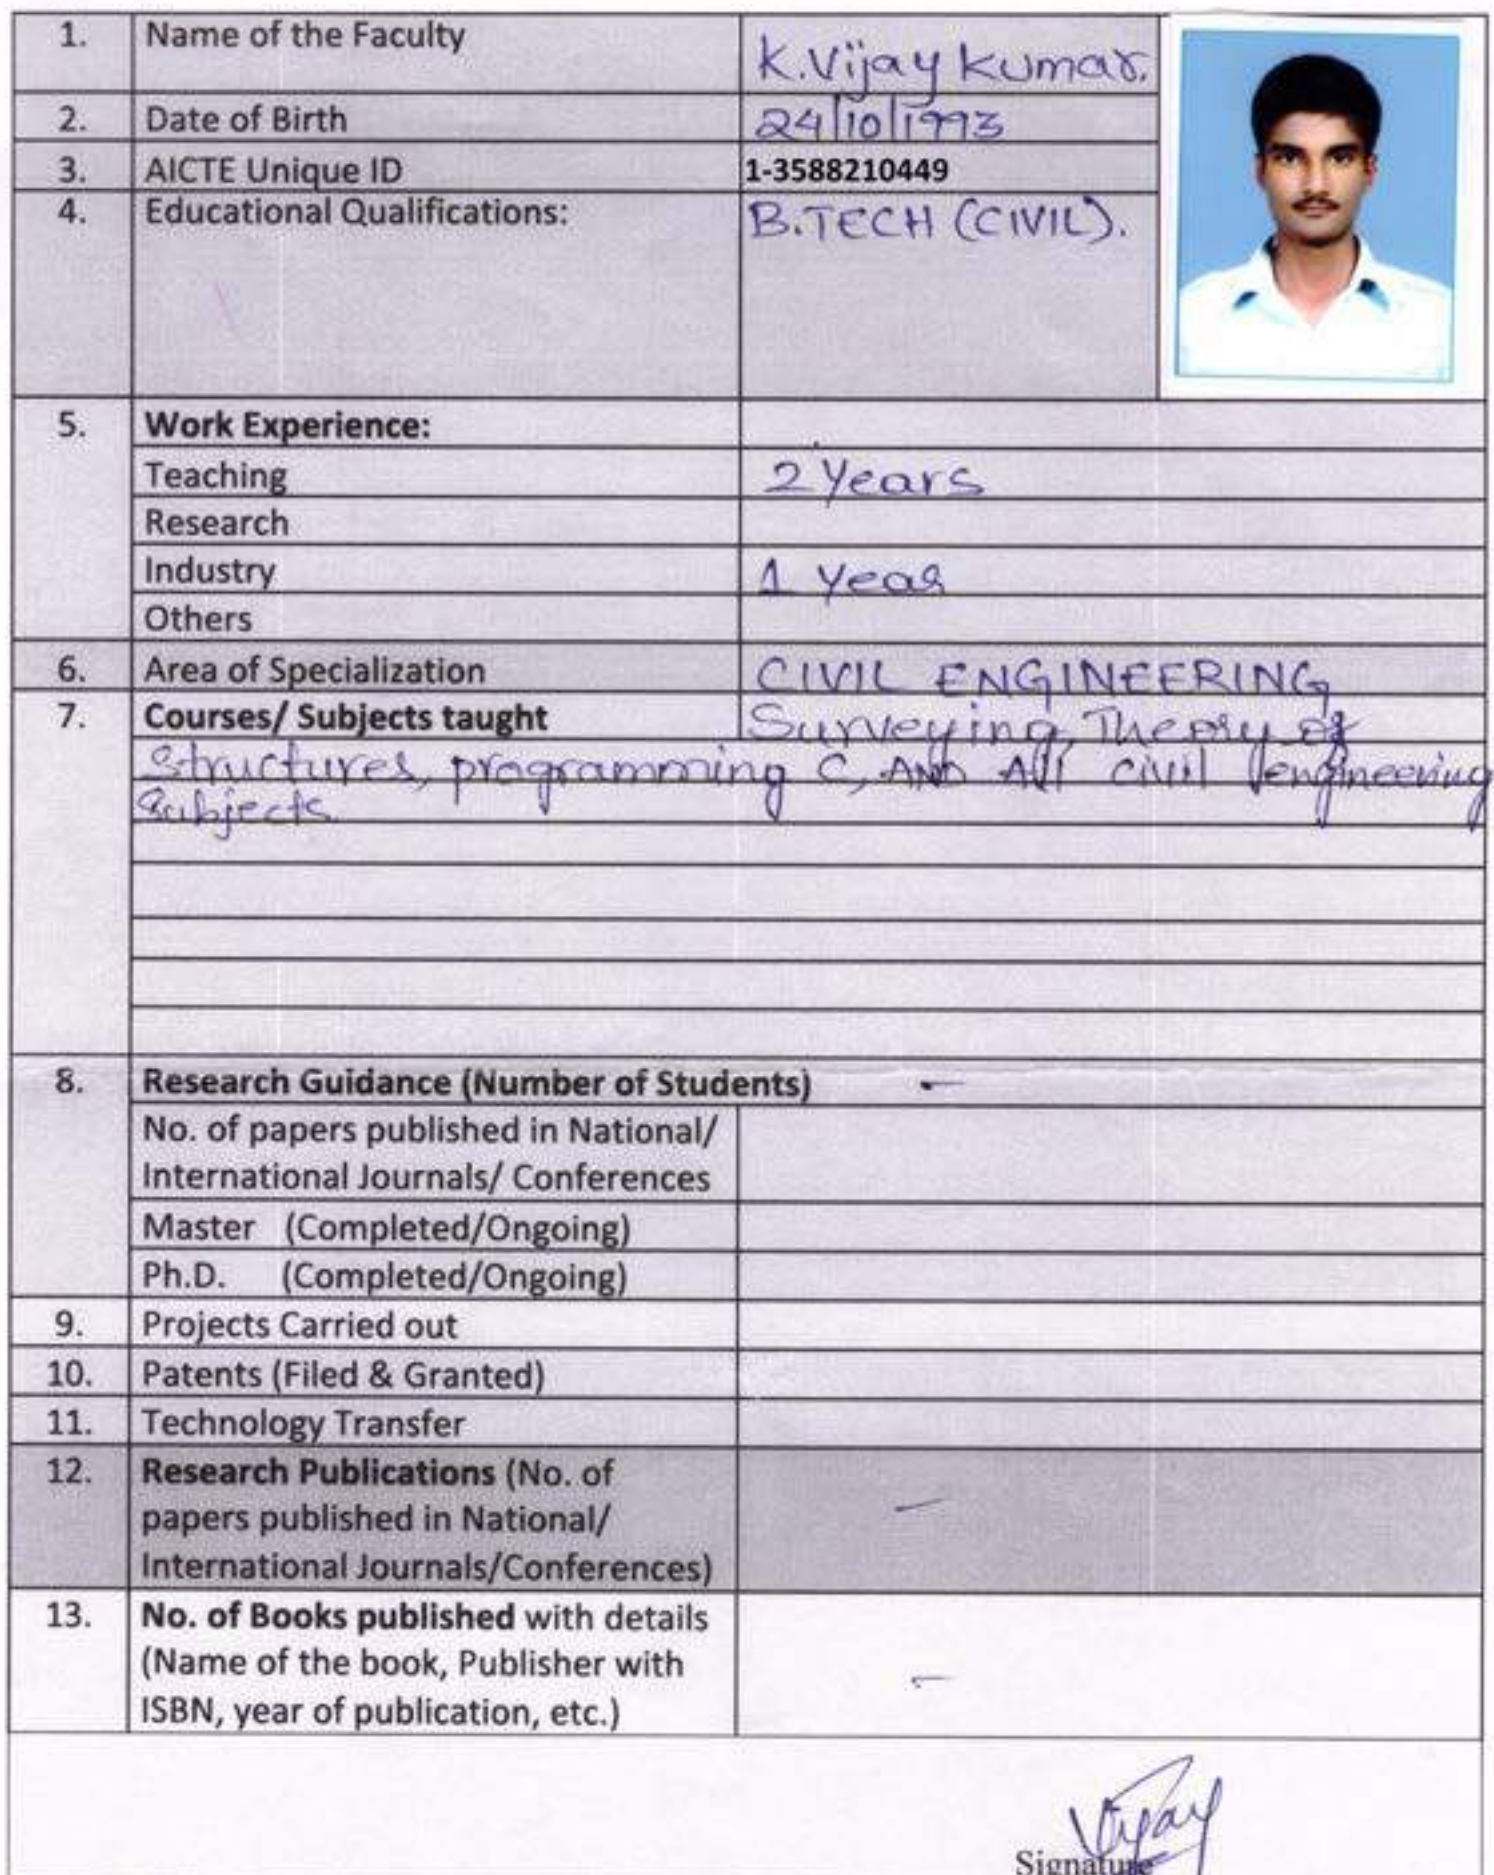 1. Name of the Faculty K.Vijay Kumar.
2. Date of Birth 24/10/1993
3. AICTE Unique ID 1-3588210449
4. Educational Qualifications: B.TECH (CIVIL).
5. Work Experience:
Teaching 2 Years
Research
Industry 1 Year
Others
6. Area of Specialization CIVIL ENGINEERING
7. Courses/ Subjects taught Surveying, Theory of
Structures, programming C, AND All civil engineering
Subjects.
8. Research Guidance (Number of Students) -
No. of papers published in National/
International Journals/ Conferences
Master (Completed/Ongoing)
Ph.D. (Completed/Ongoing)
9. Projects Carried out
10. Patents (Filed & Granted)
11. Technology Transfer
12. Research Publications (No. of
papers published in National/ -
International Journals/Conferences)
13. No. of Books published with details
(Name of the book, Publisher with -
ISBN, year of publication, etc.)
Vijay
Signature